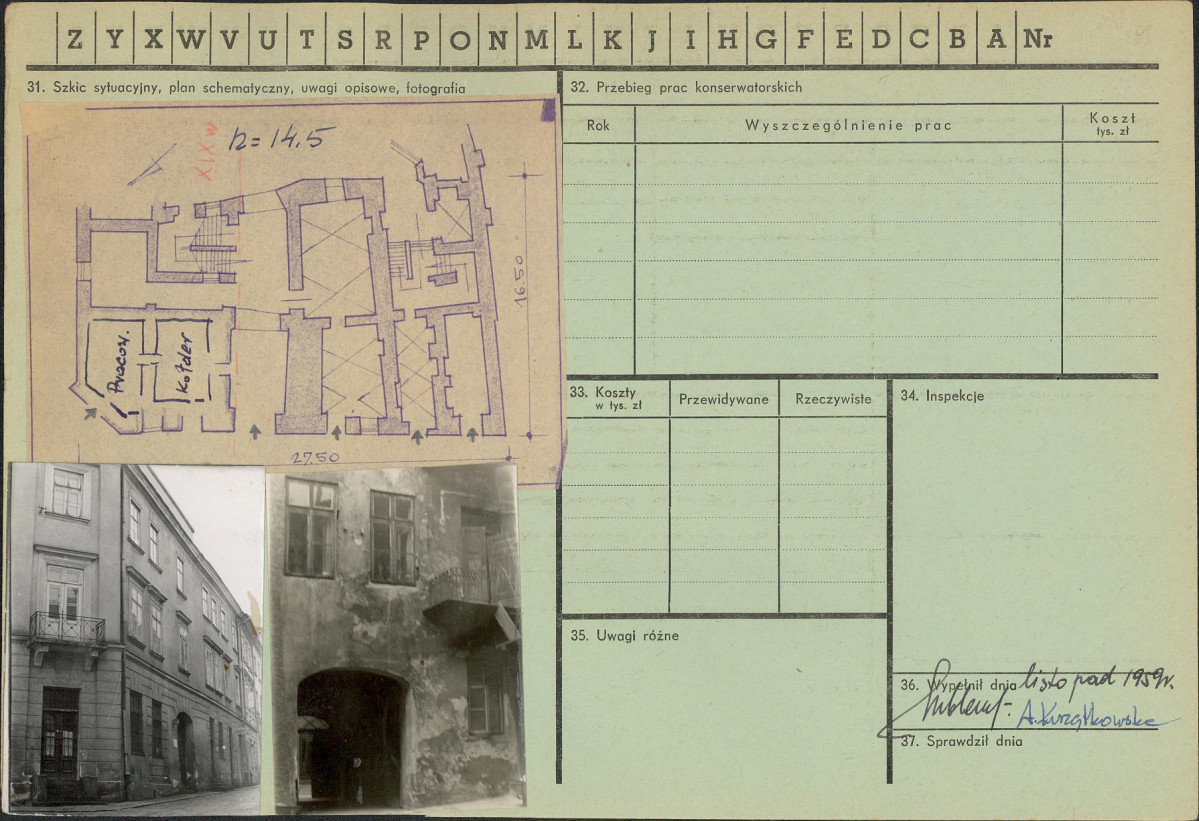 Z Y X W V U T S R P O N M L K J I H G F E D C B A Nr
31. Szkic sytuacyjny, plan schematyczny, uwagi opisowe, fotografia
XIX w
h = 14.5
16.50
Pracow.
Kołder
27.50
32. Przebieg prac konserwatorskich
Rok
Wyszczególnienie prac
Koszt
tys. zł
33. Koszty
w tys. zł
Przewidywane
Rzeczywiste
34. Inspekcje
35. Uwagi różne
36. Wypełnił dnia listopad 1959r.
A. Kurzątkowska
37. Sprawdził dnia